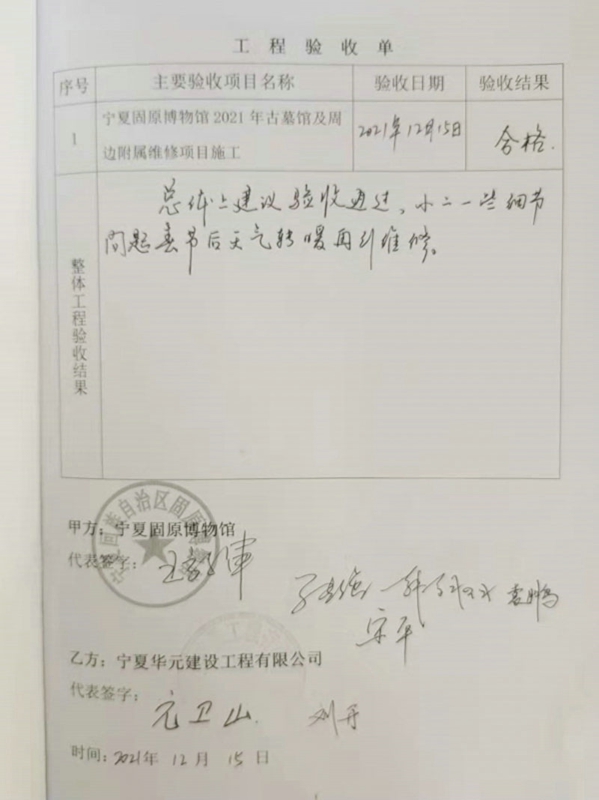 工程验收单
序号 主要验收项目名称 验收日期 验收结果
1 宁夏固原博物馆 2021 年古墓馆及周边附属维修项目施工 2021年12月15日 合格.
整体工程验收结果
总体上建议验收通过、小二一些细节
问题春节后天气转暖再行维修。
甲方：宁夏固原博物馆
代表签字：
宋平
乙方：宁夏华元建设工程有限公司
代表签字：
元卫山. 刘丹
时间：2021年 12 月 15 日